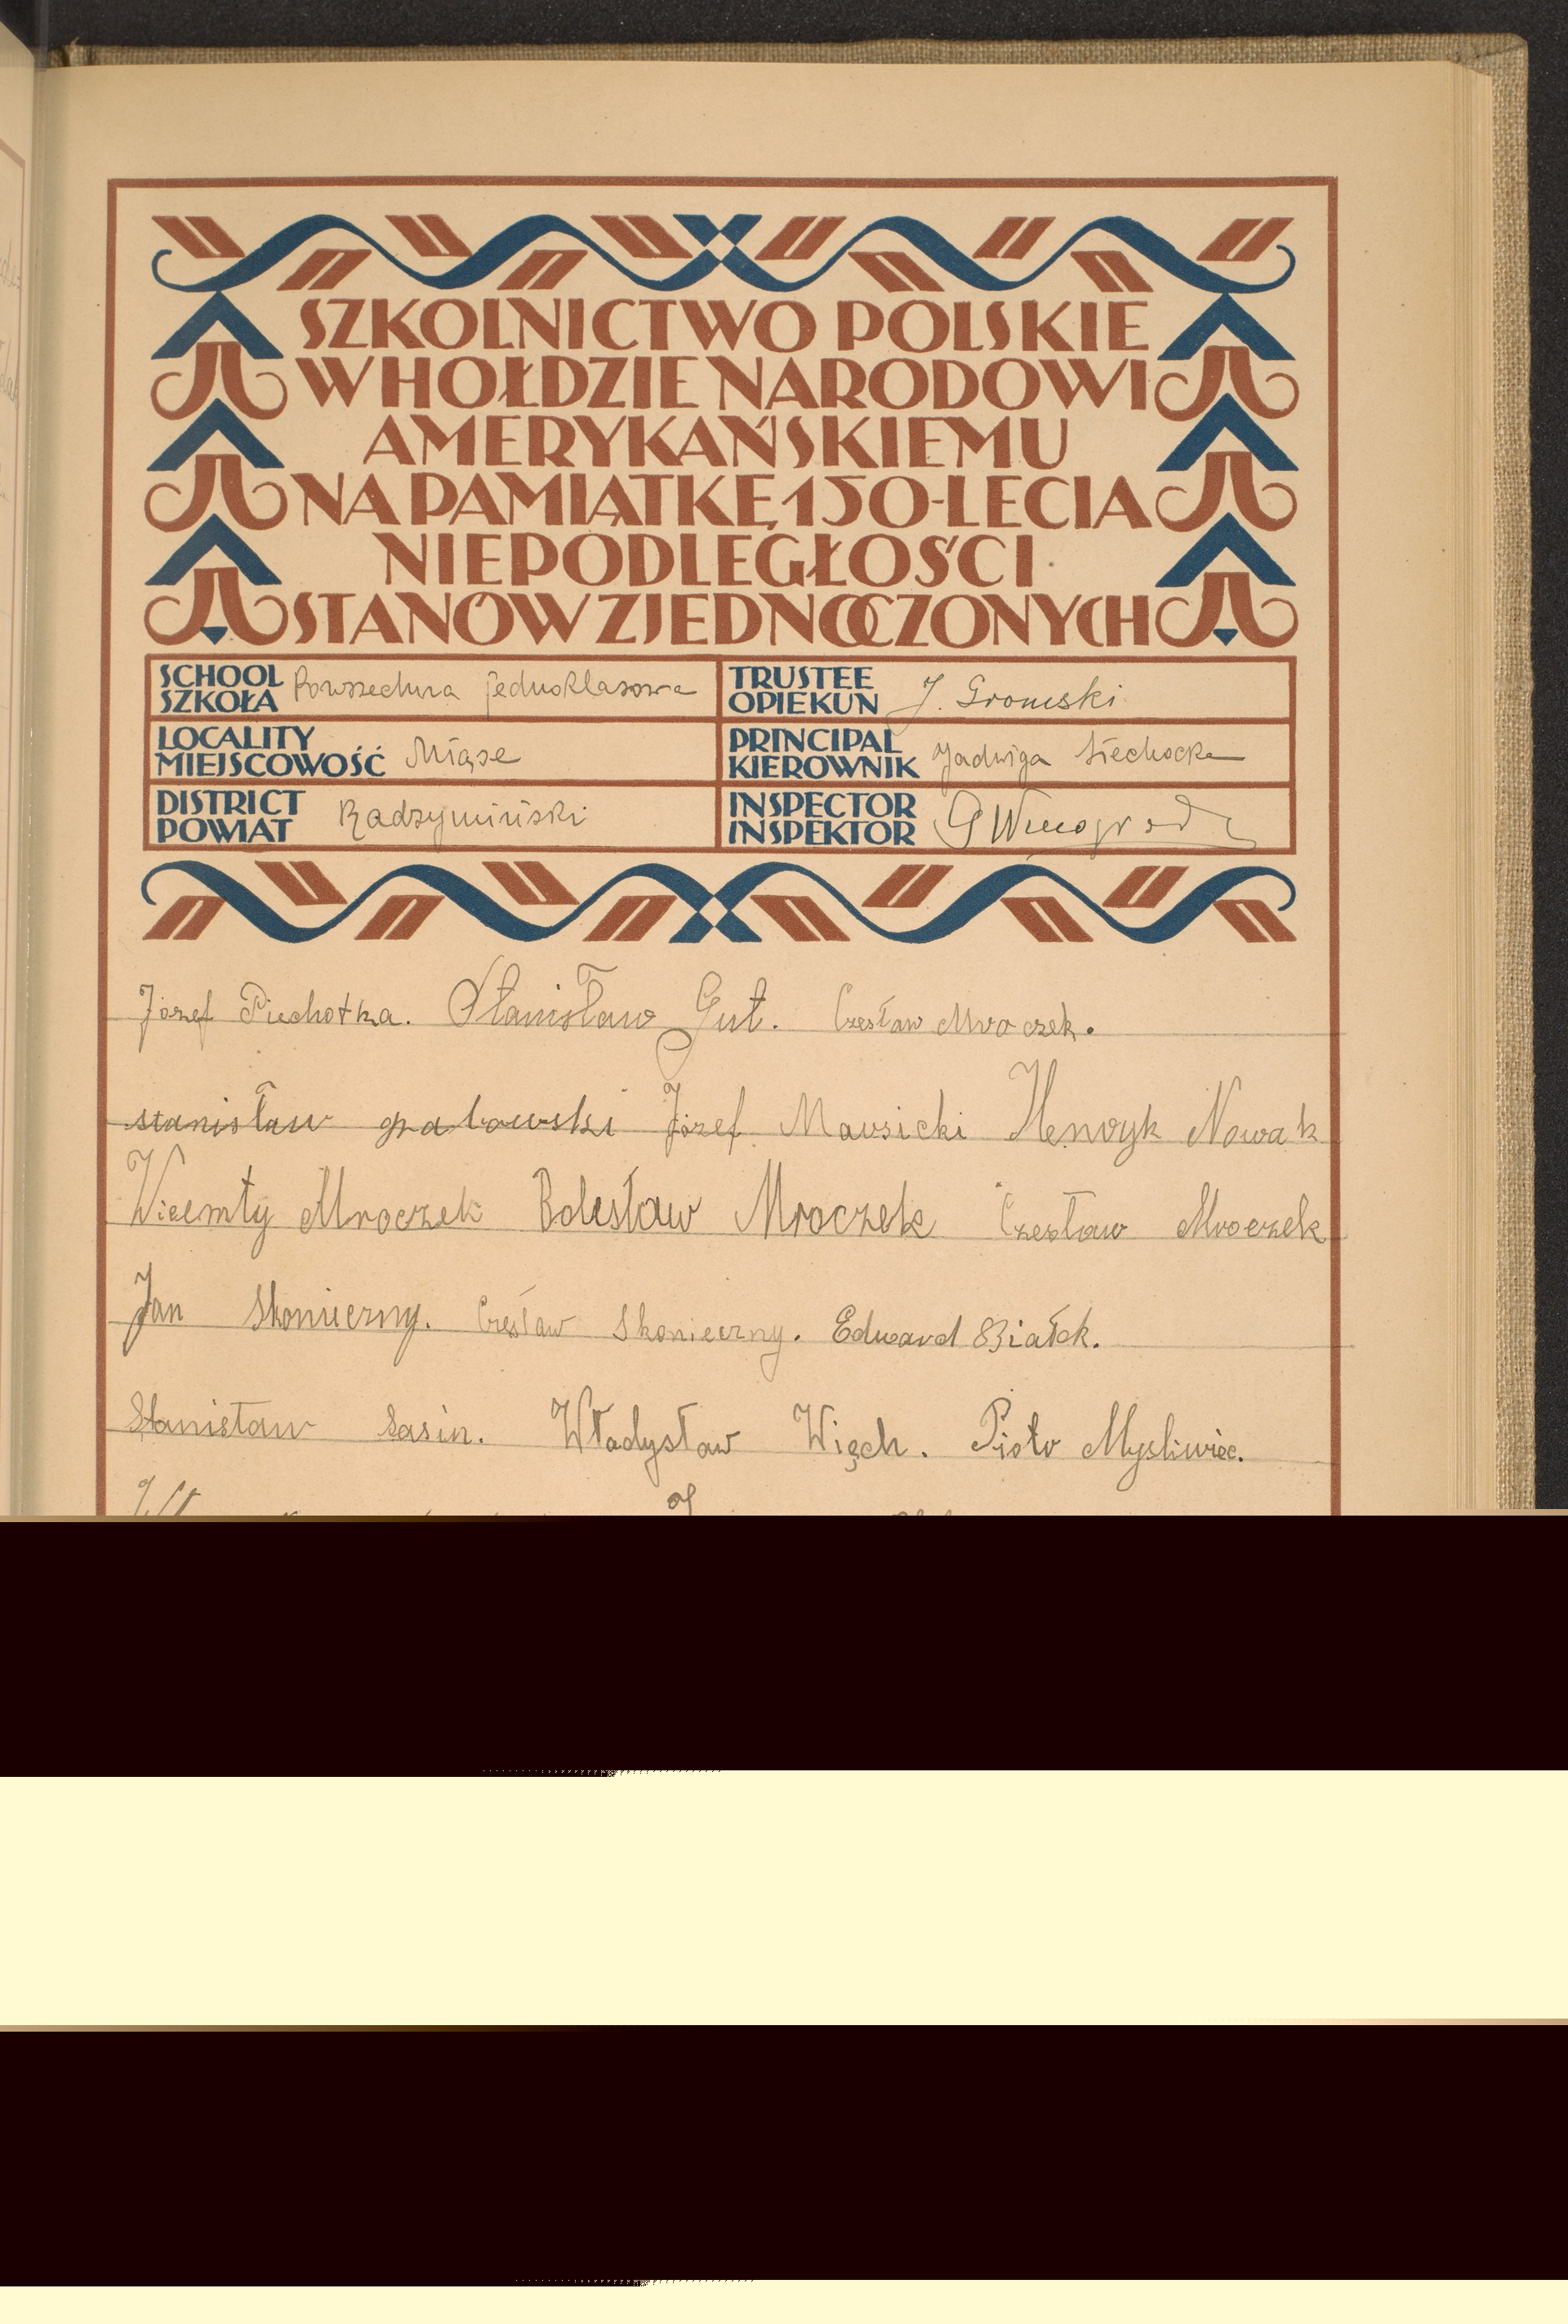 SZKOLNICTWO POLSKIE
W HOŁDZIE NARODOWI
AMERYKAŃSKIEMU
NA PAMIĄTKĘ 150-LECIA
NIEPODLEGŁOŚCI
STANÓW ZJEDNOCZONYCH
SCHOOL
SZKOŁA Powszechna jednoklasowa
TRUSTEE
OPIEKUN J. Gromski
LOCALITY
MIEJSCOWOŚĆ Miąse
PRINCIPAL
KIEROWNIK Jadwiga Siechocka
DISTRICT
POWIAT Radzymiński
INSPECTOR
INSPEKTOR
Józef Piechotka. Stanisław Gut. Czesław Mroczek.
stanisław grabowski Józef Mavsicki Henryk Nowak
Wicemty Mroczek Bolesław Mroczek Czesław Mroczek
Jan Skonieczny. Czesław Skonieczny. Edward Białek.
Stanisław Sasin. Władysław Więch. Piotr Mysliwiec.